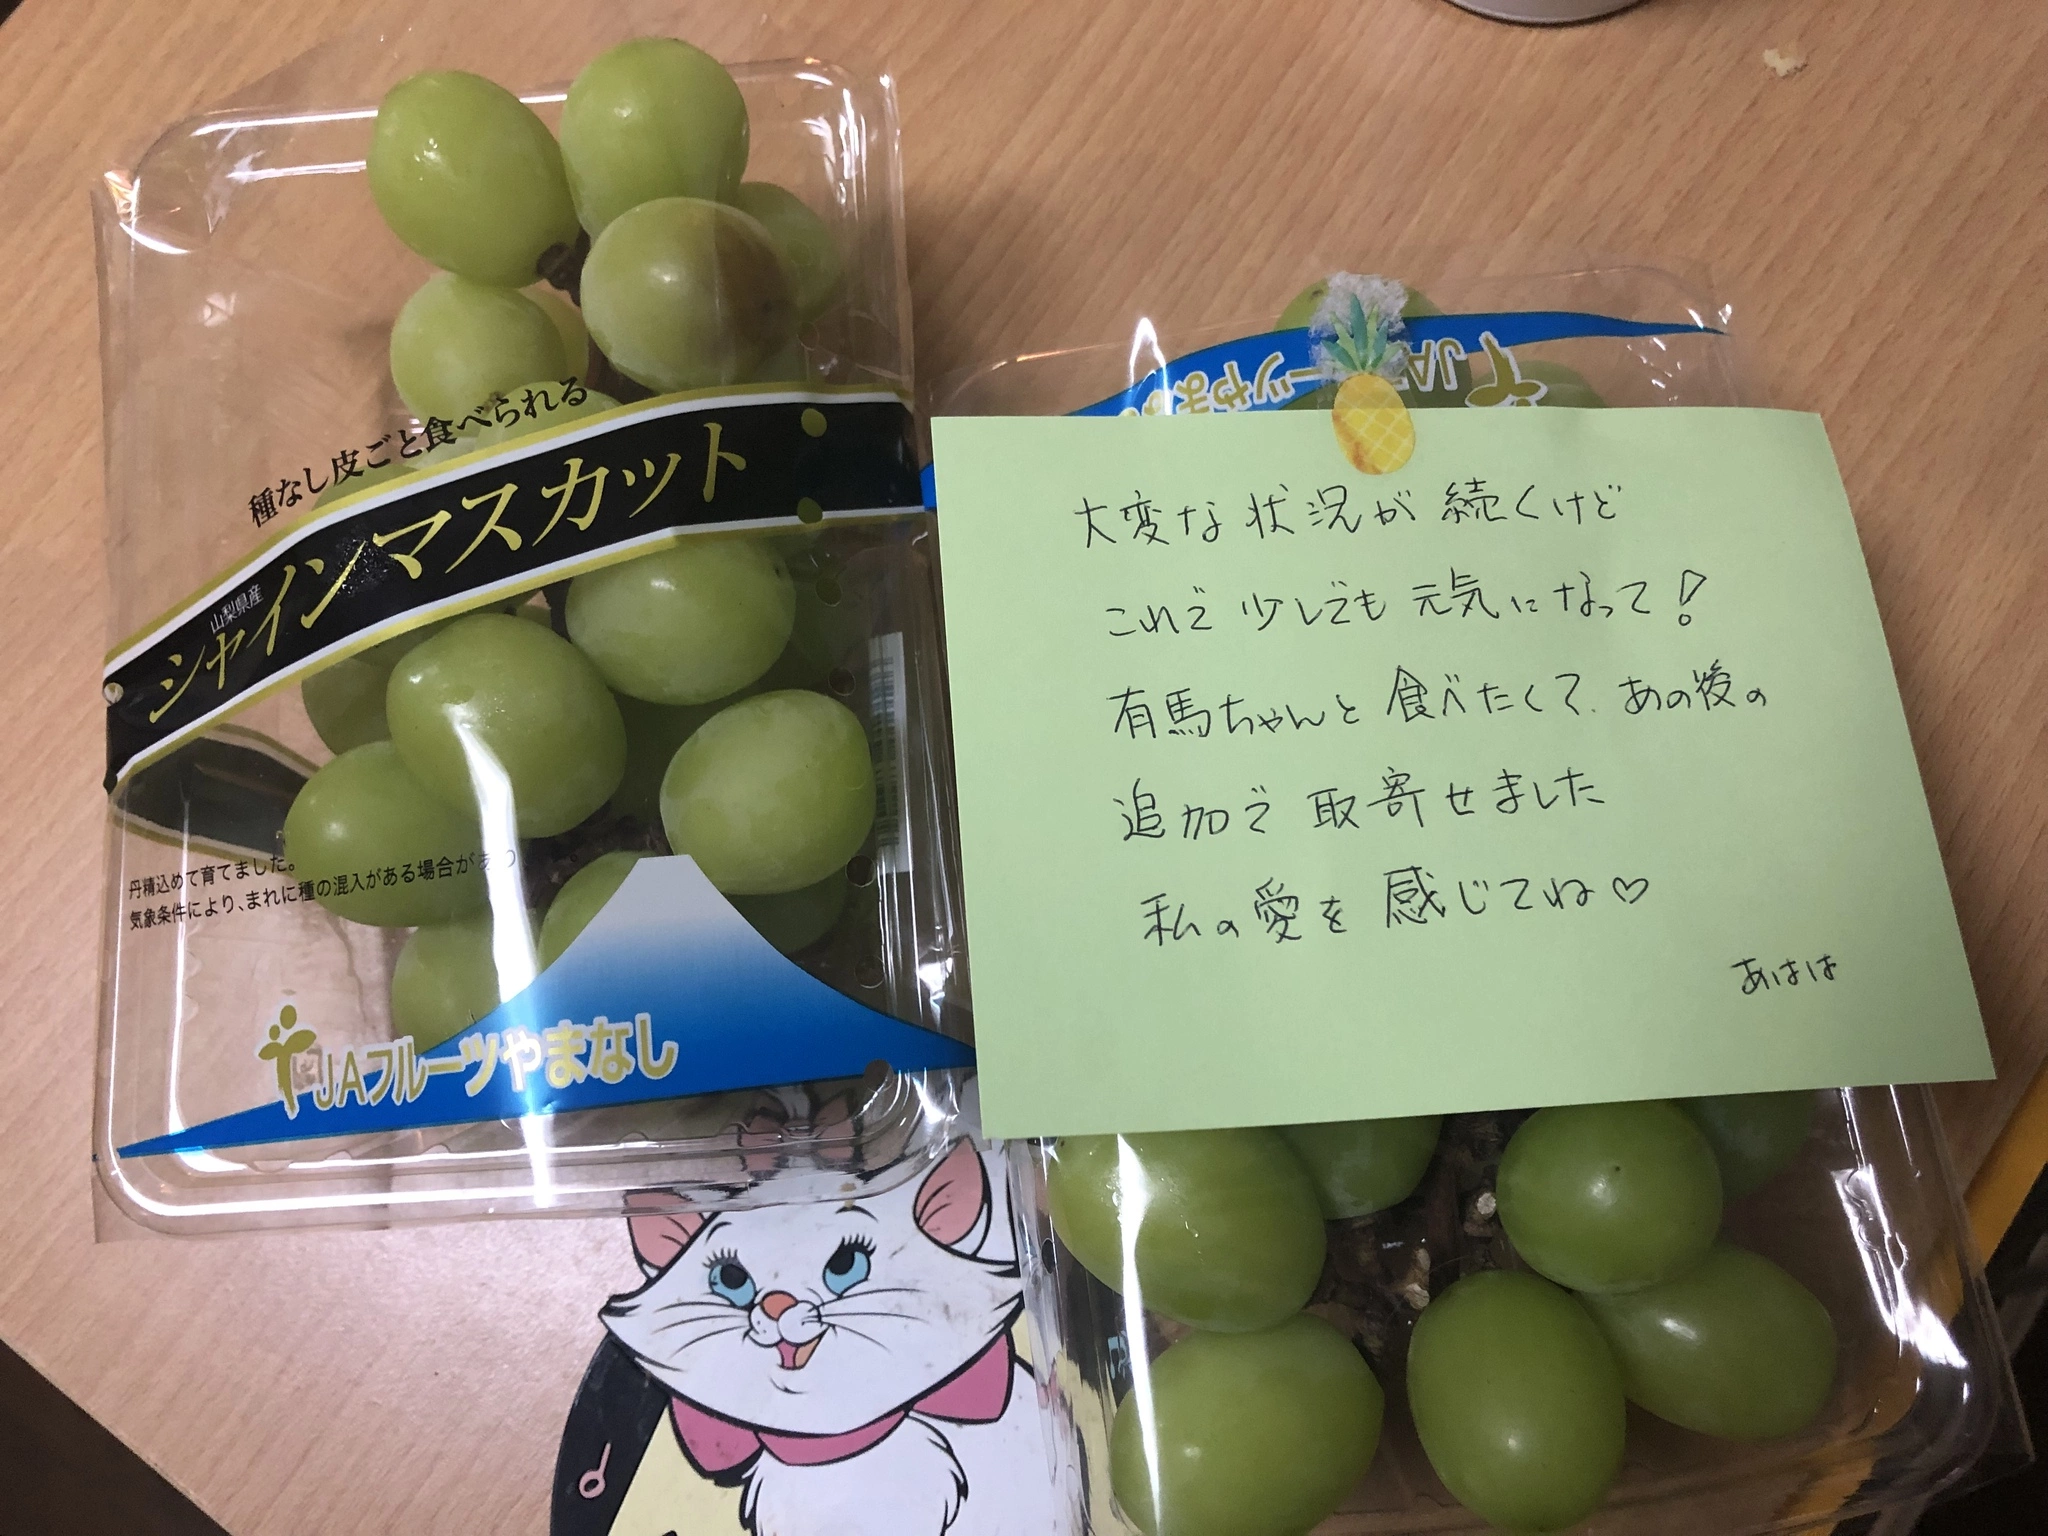 種なし皮ごと食べられる
山梨県産
シャインマスカット
丹精込めて育てました。
気象条件により、まれに種の混入がある場合があり
JAフルーツやまなし
JA
ーツやま
大変な状況が続くけど
これで少しでも元気になって!
有馬ちゃんと食べたくて、あの後の
追加で取寄せました
私の愛を感じてね♡
あはは